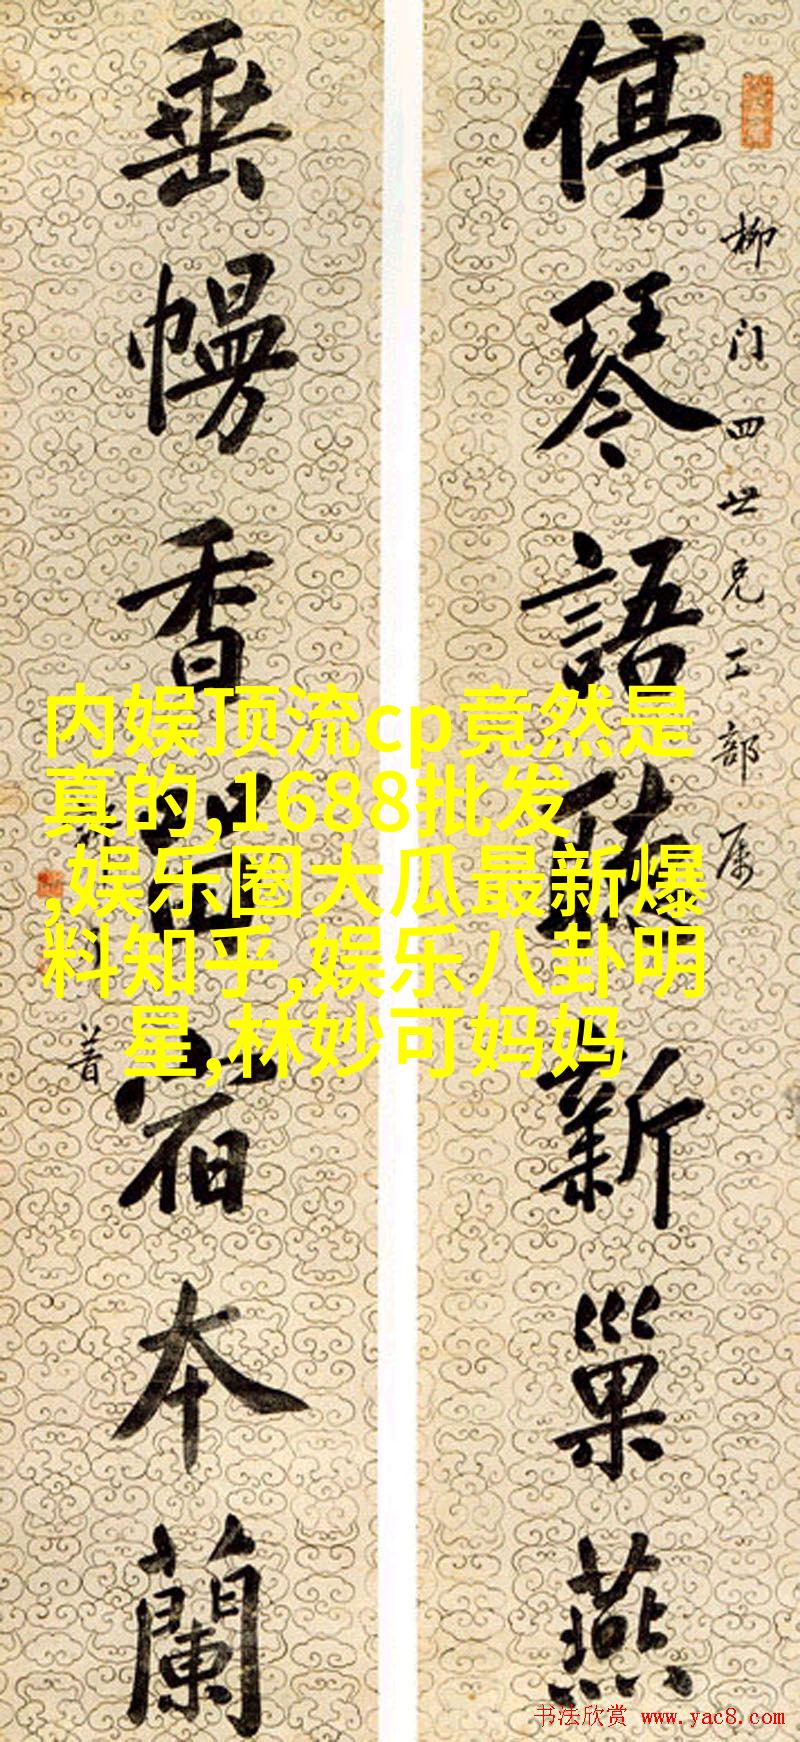 停琴語聽新巢燕
柳门四世兄工部属
垂幔香留宿本蘭
内娱顶流cp竟然是
真的,1688批发
,娱乐圈大瓜最新爆
料知乎,娱乐八卦明
星,林妙可妈妈
书法欣赏 www.yac8.com